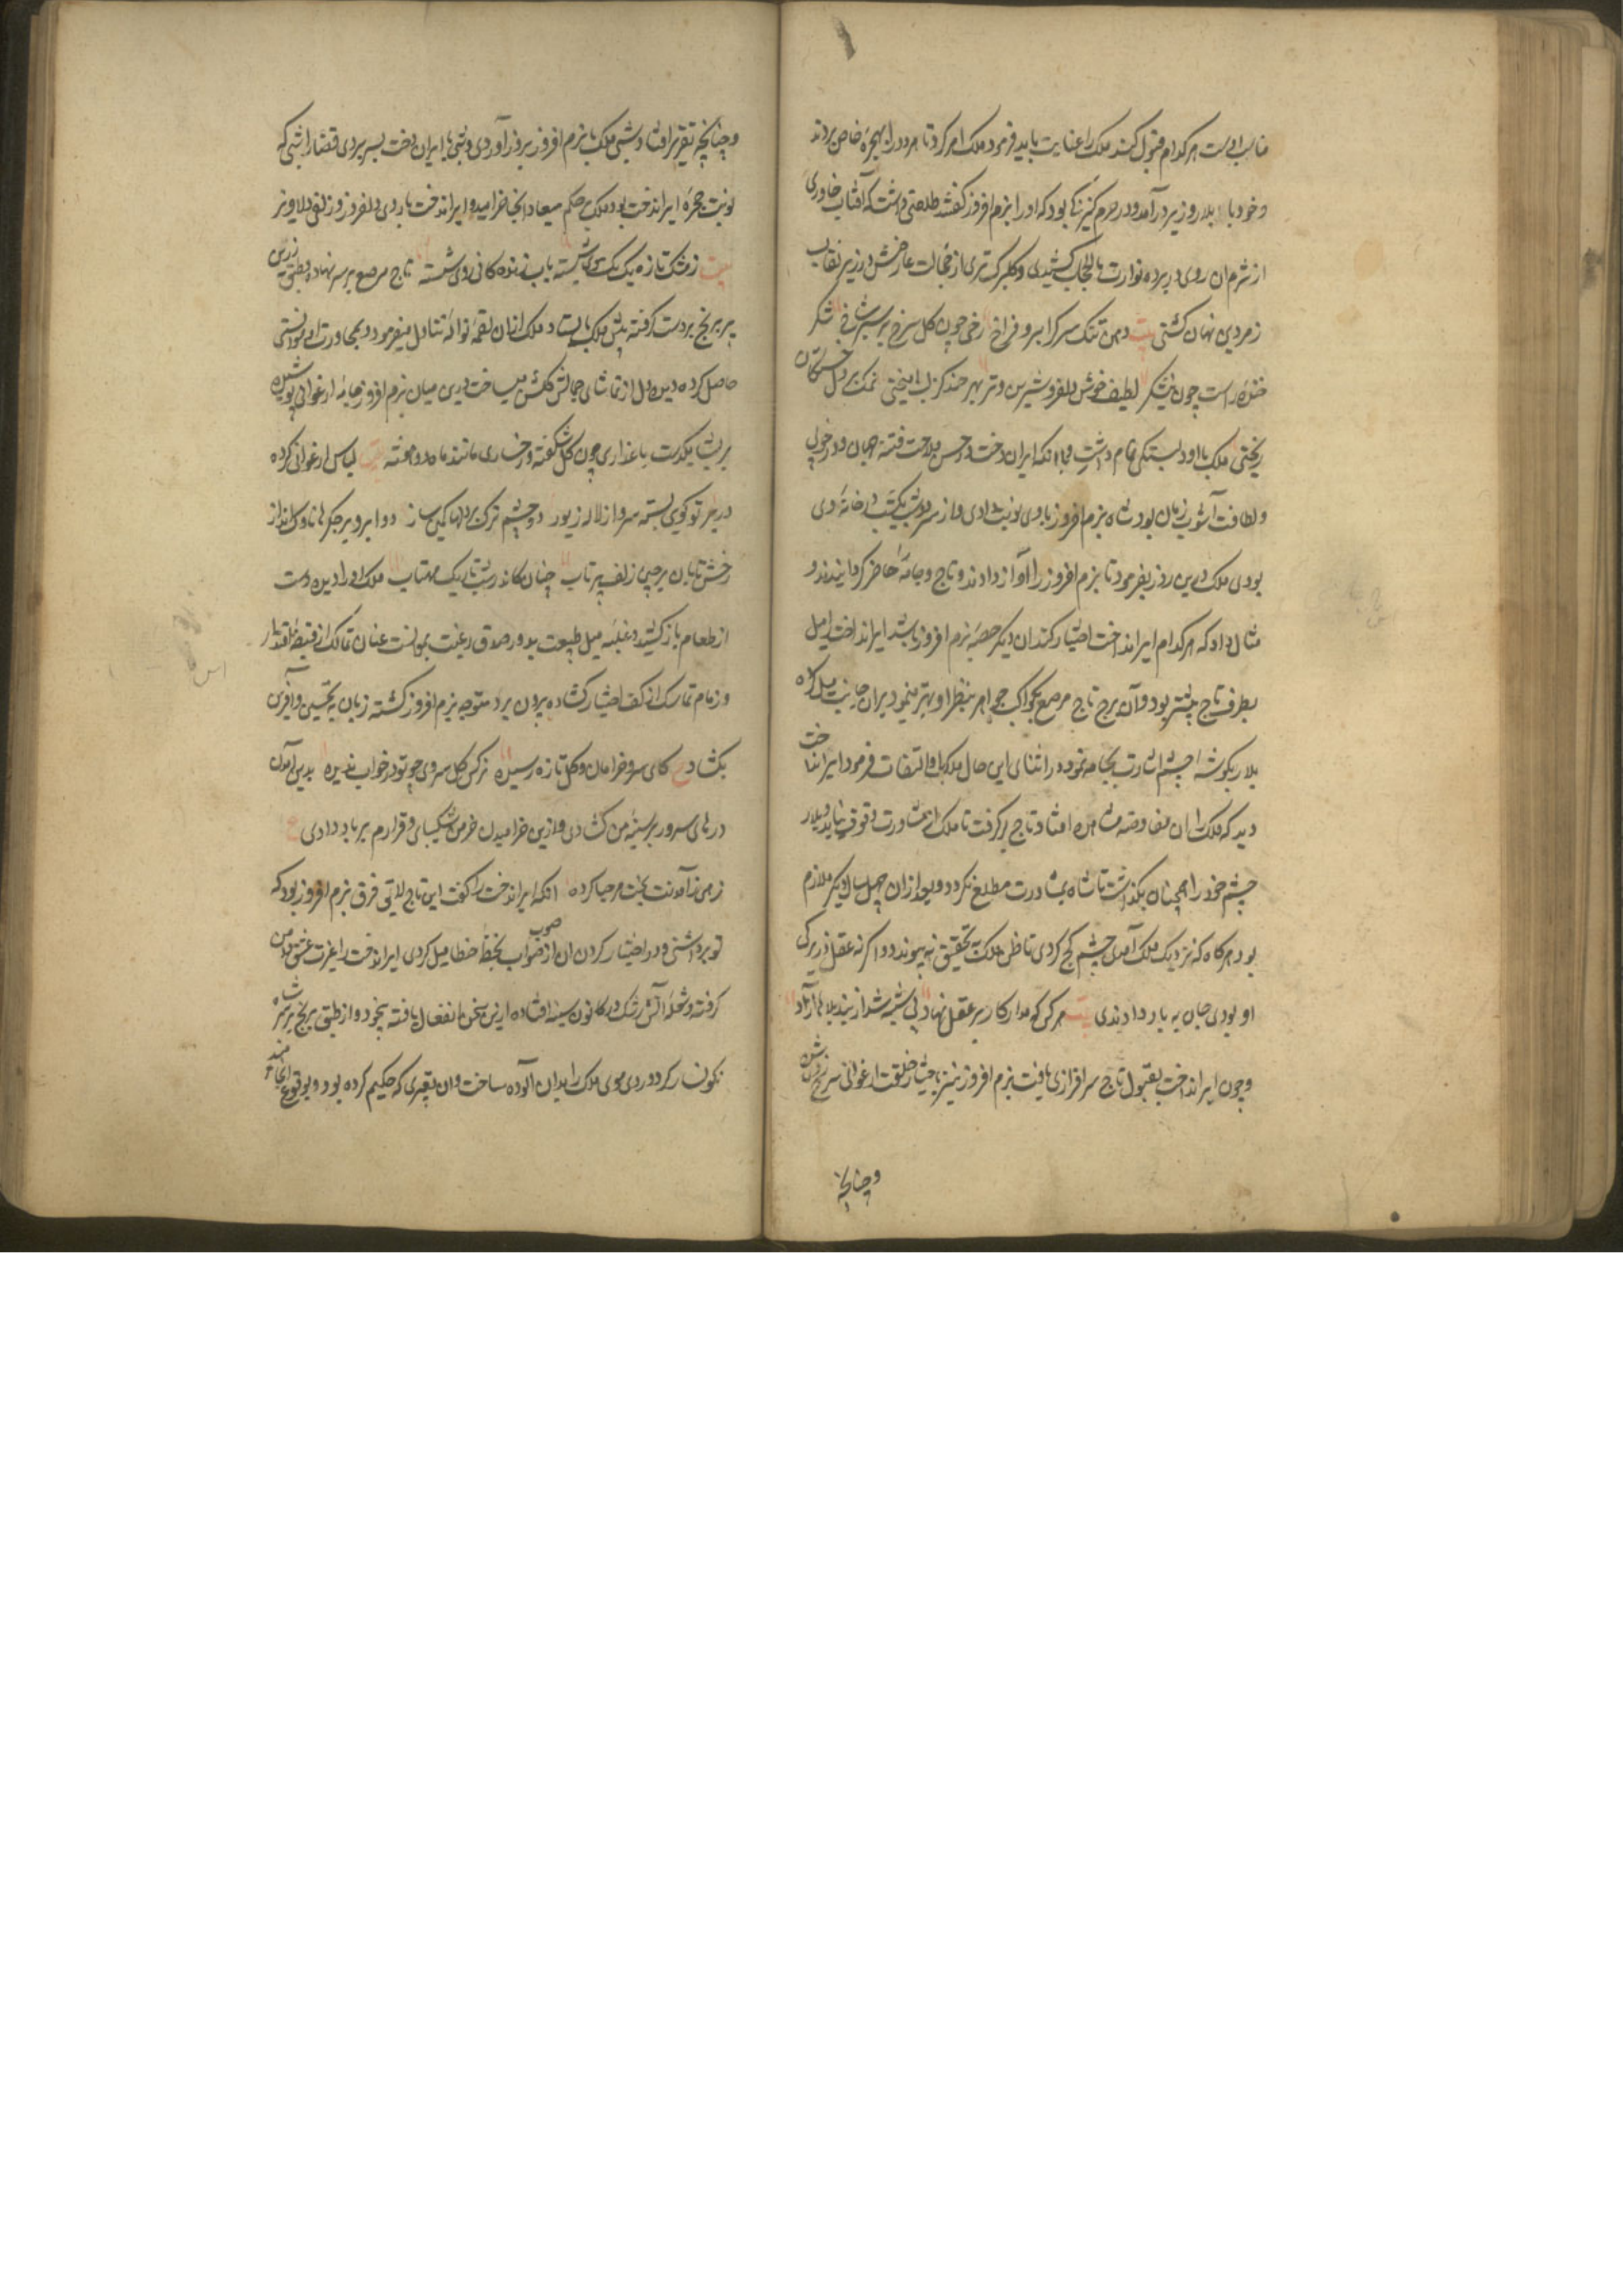 مناسب او است هر کدام قبول کند ملک را عنایت باید فرمود ملک امر کرد تا هر دو را بحجره خاص بردند
و خود با بلار وزیر درآمد و در حرم کنیزکی بود که او را بزم افروز گفتندی طلعتی داشت که آفتاب خاوری
از شرم آن روی در پرده توارت بالحجاب کشیدی و گلبرگ طری از خجالت عارضش در زیر نقاب
زمردین نهان گشتی بیت دهن تنگ سرگرا ابرو فراخ رخی چون گل سرخ بر سر شاخ شکر
خنده راست چون نیشکر لطیف خوش دلفروز شیرین و تر بهر خنده کز لب انگیختی نمک بر دل خستگان
ریختی ملک با او دلبستگی تمام داشت با آنکه ایران دخت در حسن ملاحت فتنه جهان و در خوبی
و لطافت آشوب زمان بود شاه بزم افروز را با وی نوبت دادی و از سر دو شب یکشب در خانه وی
بودی ملک درین روز بفرمود تا بزم افروز را آواز دادند و تاج و جامه حاضر گردانیدند و
مثال داد که هر کدام ایراندخت اختیار کند آن دیگر حصه بزم افروز باشد ایراندخت را میل
بطرف تاج بیشتر بود و آن برج تاج مرصع بکواکب جواهر بنظر او بهتر مینمود بر آن جانب میل کرده
بلار بگوشه چشم اشارت بجامه نمود در اثنای این حال ملک بدو التفات فرمود ایراندخت
دید که ملک را آن مفاوضه مشاهده افتاد تاج برگرفت تا ملک از مشاورت وقوف نیابد و بلار
چشم خود را همچنان بگذاشت تا شاه بمشاورت مطلع نگردد و بعد از آن چهل سال دیگر ملازم
بود هر گاه که نزدیک ملک آمدی چشم کج کردی تا ظن ملک بتحقیق نه پیوندد و اگر نه عقل و زیرکی
او بودی جان بباد دادندی بیت هر کس که مدار کار بر عقل نهاد بی شبهه شد از بند بلاها آزاد
و چون ایراندخت بقبول تاج سرافرازی یافت بزم افروز نیز باختیار خلعت ارغوانی سرخ روی شده
و چنانچه
و چنانچه تقریر افتاد شبی ملک با بزم افروز بروز آوردی و شبی با ایران دخت بسر بردی قضا را شبی که
نوبت حجره ایراندخت بود ملک بحکم میعاد آنجا خرامید و ایراندخت با روی دلفروز و زلف دلاویز
بیت زمشک تازه یک یک موی شسته بآب زندگانی روی شسته تاج مرصع بر سر نهاده و طبق زرین
پر برنج بر دست گرفته پیش ملک بایستاد ملک از آن لقمه نواله تناول میفرمود و بمجاورت او انستی
حاصل کرده دیده دل از تماشای جمالش گلشن میساخت درین میان بزم افروز جامه ارغوانی پوشیده
بریشان بگذشت با عذاری چون گل شکفته و رخساری مانند ماه دو هفته بیت لباس ارغوانی کرده
در بر تو گوئی بسته سرو از لاله زیور دو چشم ترک بر دلها کمین ساز دو ابرو بر جگرها ناوک انداز
رخش تابان برجیی زلف پرتاب چنان کاندر شب تاریک مهتاب ملک او را دید دست
از طعام باز کشید و غلبه میل طبیعت بدو و صدق رغبت بموانست عنان تمالک از قبضه اقتدار
و زمام تماسک از کف اختیار کشاده بیرون برد متوجه بزم افروز گشته زبان به تحسین و آفرین
بگشاد ع کای سرو خرامان و گل تازه رسیده نرگس گل سروی چو تو در خواب ندیده بدین آمدن
درهای سرور بر سینه من گشادی و ازین خرامیدن خرمن شکیبایی و قرارم بر باد دادی ع
زهی ز آمدنت بخت مرحبا کرده آنکه ایراندخت را گفت این تاج لایق فرق بزم افروز بود که
تو برداشتی و در اختیار کردن آن از صوب صواب بخطه خطا میل کردی ایراندخت را غیرت عشق دامن
گرفته و شعله آتش رشک در کانون سینه افتاده ازین سخن انفعال یافته بیخود وار طبق برنج بر سر شاه
نگونسار کرد و روی و موی ملک را بدان آلوده ساخت و آن تعبیری که حکیم کرده بود بوقوع انجامید